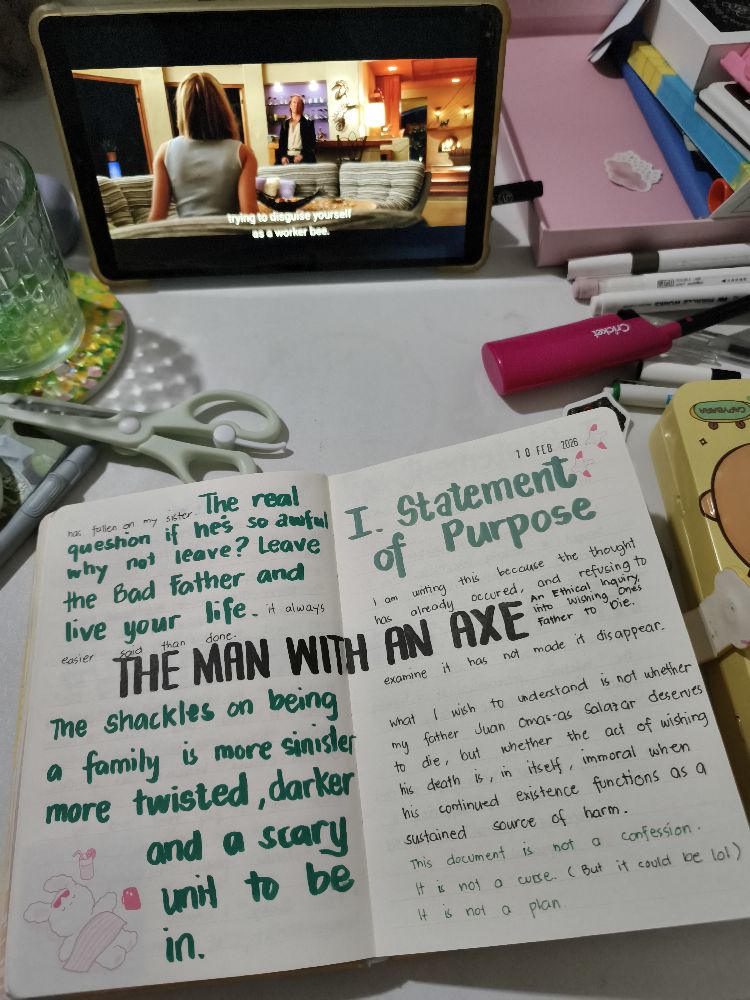 trying to disguise yourself
as a worker bee.
Cricket
CAPYBARA
has fallen on my sister. The real
question if he's so awful
why not leave? Leave
the Bad Father and
live your life. it always
easier said than done.
THE MAN WITH AN AXE
The shackles on being
a family is more sinister
more twisted, darker
and a scary
unit to be
in.
10 FEB 2026
I. Statement
of Purpose
I am writing this because the thought
has already occured, and refusing to
An Ethical Inquiry
into Wishing Ones
Father to Die.
examine it has not made it disappear.
what I wish to understand is not whether
my father Juan Omas-as Salazar deserves
to die, but whether the act of wishing
his death is, in itself, immoral when
his continued existence functions as a
sustained source of harm.
This document is not a confession.
It is not a curse. (But it could be lol)
It is not a plan.